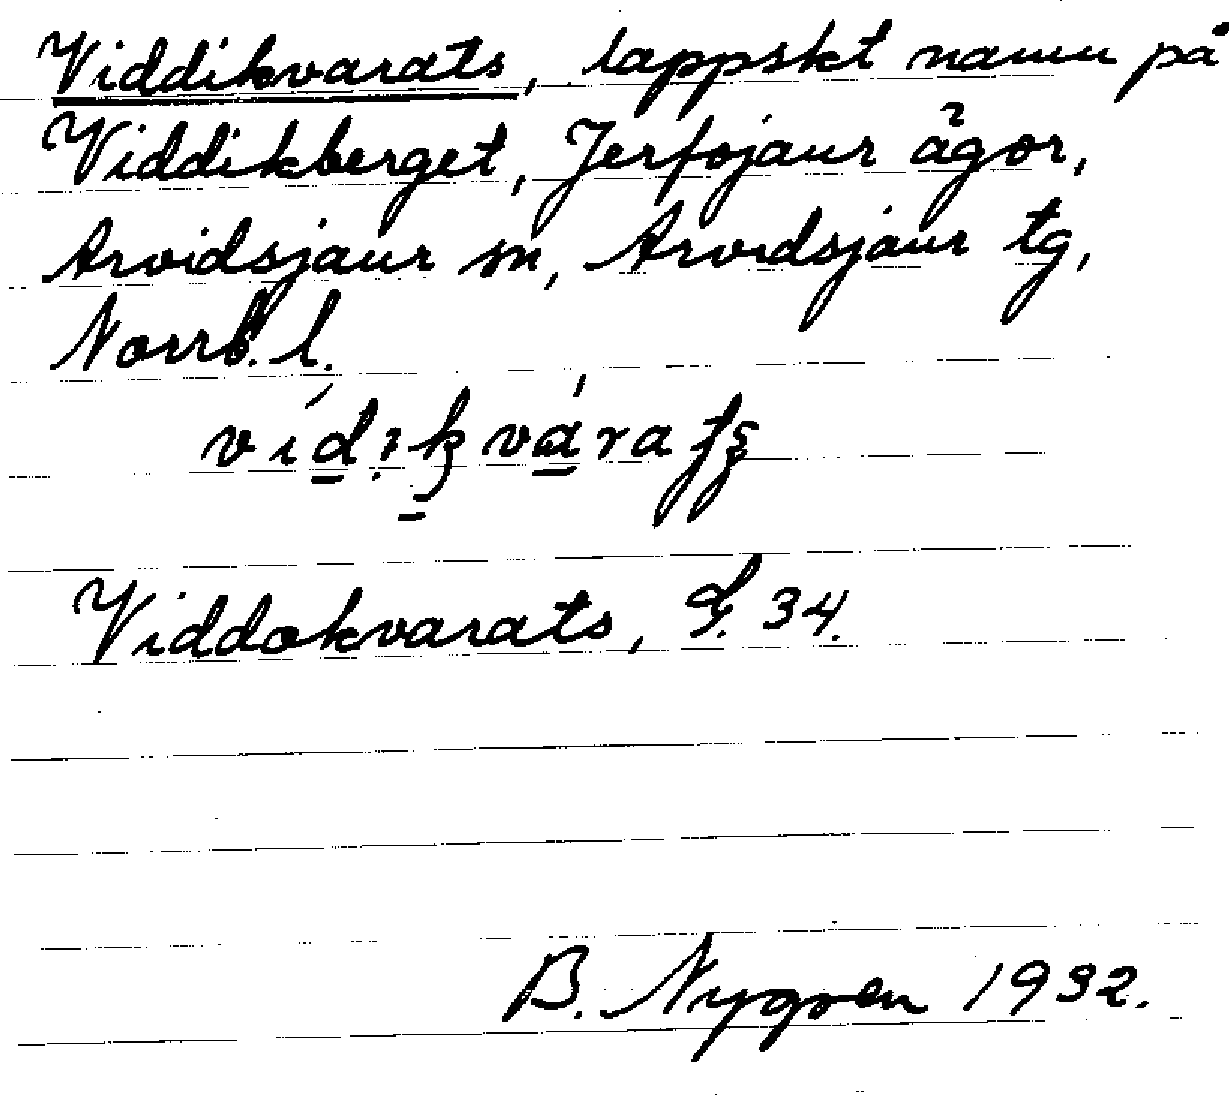 Viddikvarats, lappskt namn på
Viddikberget, Jerfojaur ägor,
Arvidsjaur sn, Arvidsjaur tg,
Norrb. l.
Viddokvarats, 34.
B. Nygren 1932.